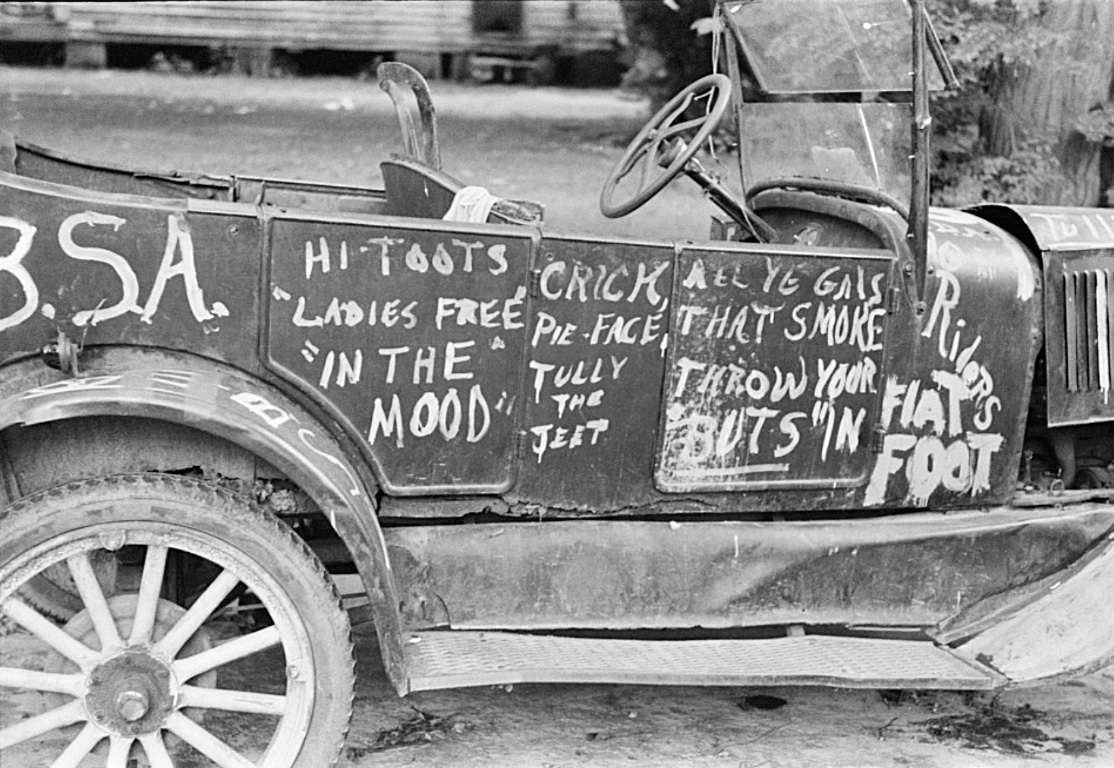 B.S.A.
HI-TOOTS
"LADIES FREE"
"IN THE"
MOOD"
CRICK,
PIE-FACE,
TULLY
THE
JEET
ALL YE GALS
THAT SMOKE
THROW YOUR
"BUTS" IN
Riders
FLAT
FOOT